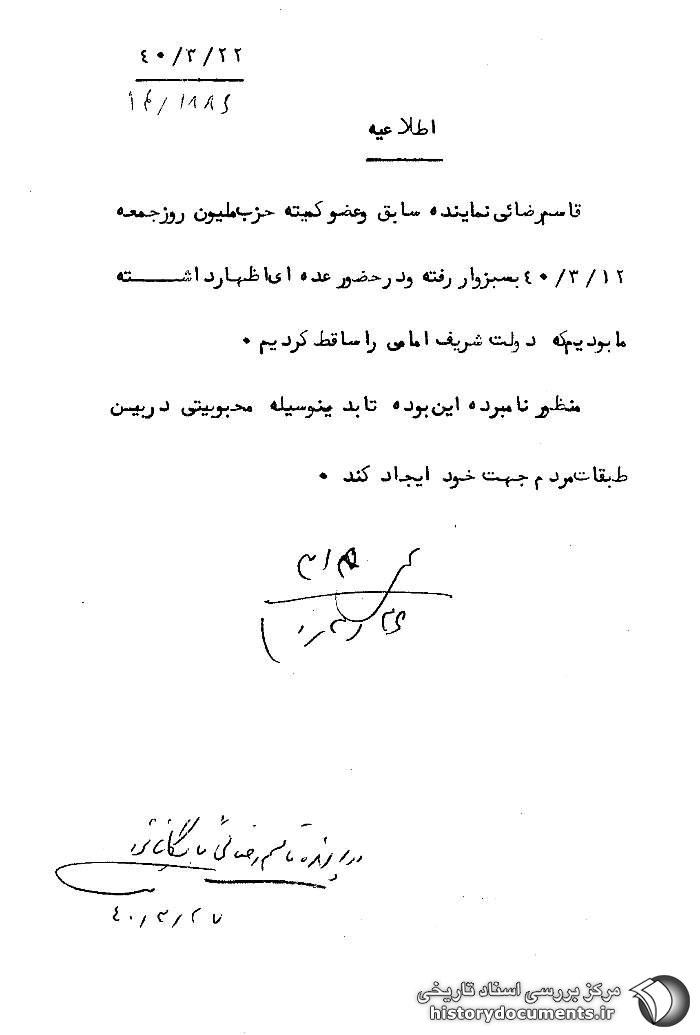 ٤٠/٣/٢٢
اطلاعیه
قاسم رضائی نماینده سابق وعضو کمیته حزب ملیون روز جمعه
٤٠/٣/١٢ بسبزوار رفته ودرحضور عده ای اظهارداشته
ما بودیم که دولت شریف امامی را ساقط کردیم ٠
منظور نامبرده این بوده تا بدینوسیله محبوبیتی دربین
طبقات مردم جهت خود ایجاد کند ٠
در پرونده قاسم رضائی بایگانی شود
٤٠/٣/٢٧
مرکز بررسی اسناد تاریخی
historydocuments.ir